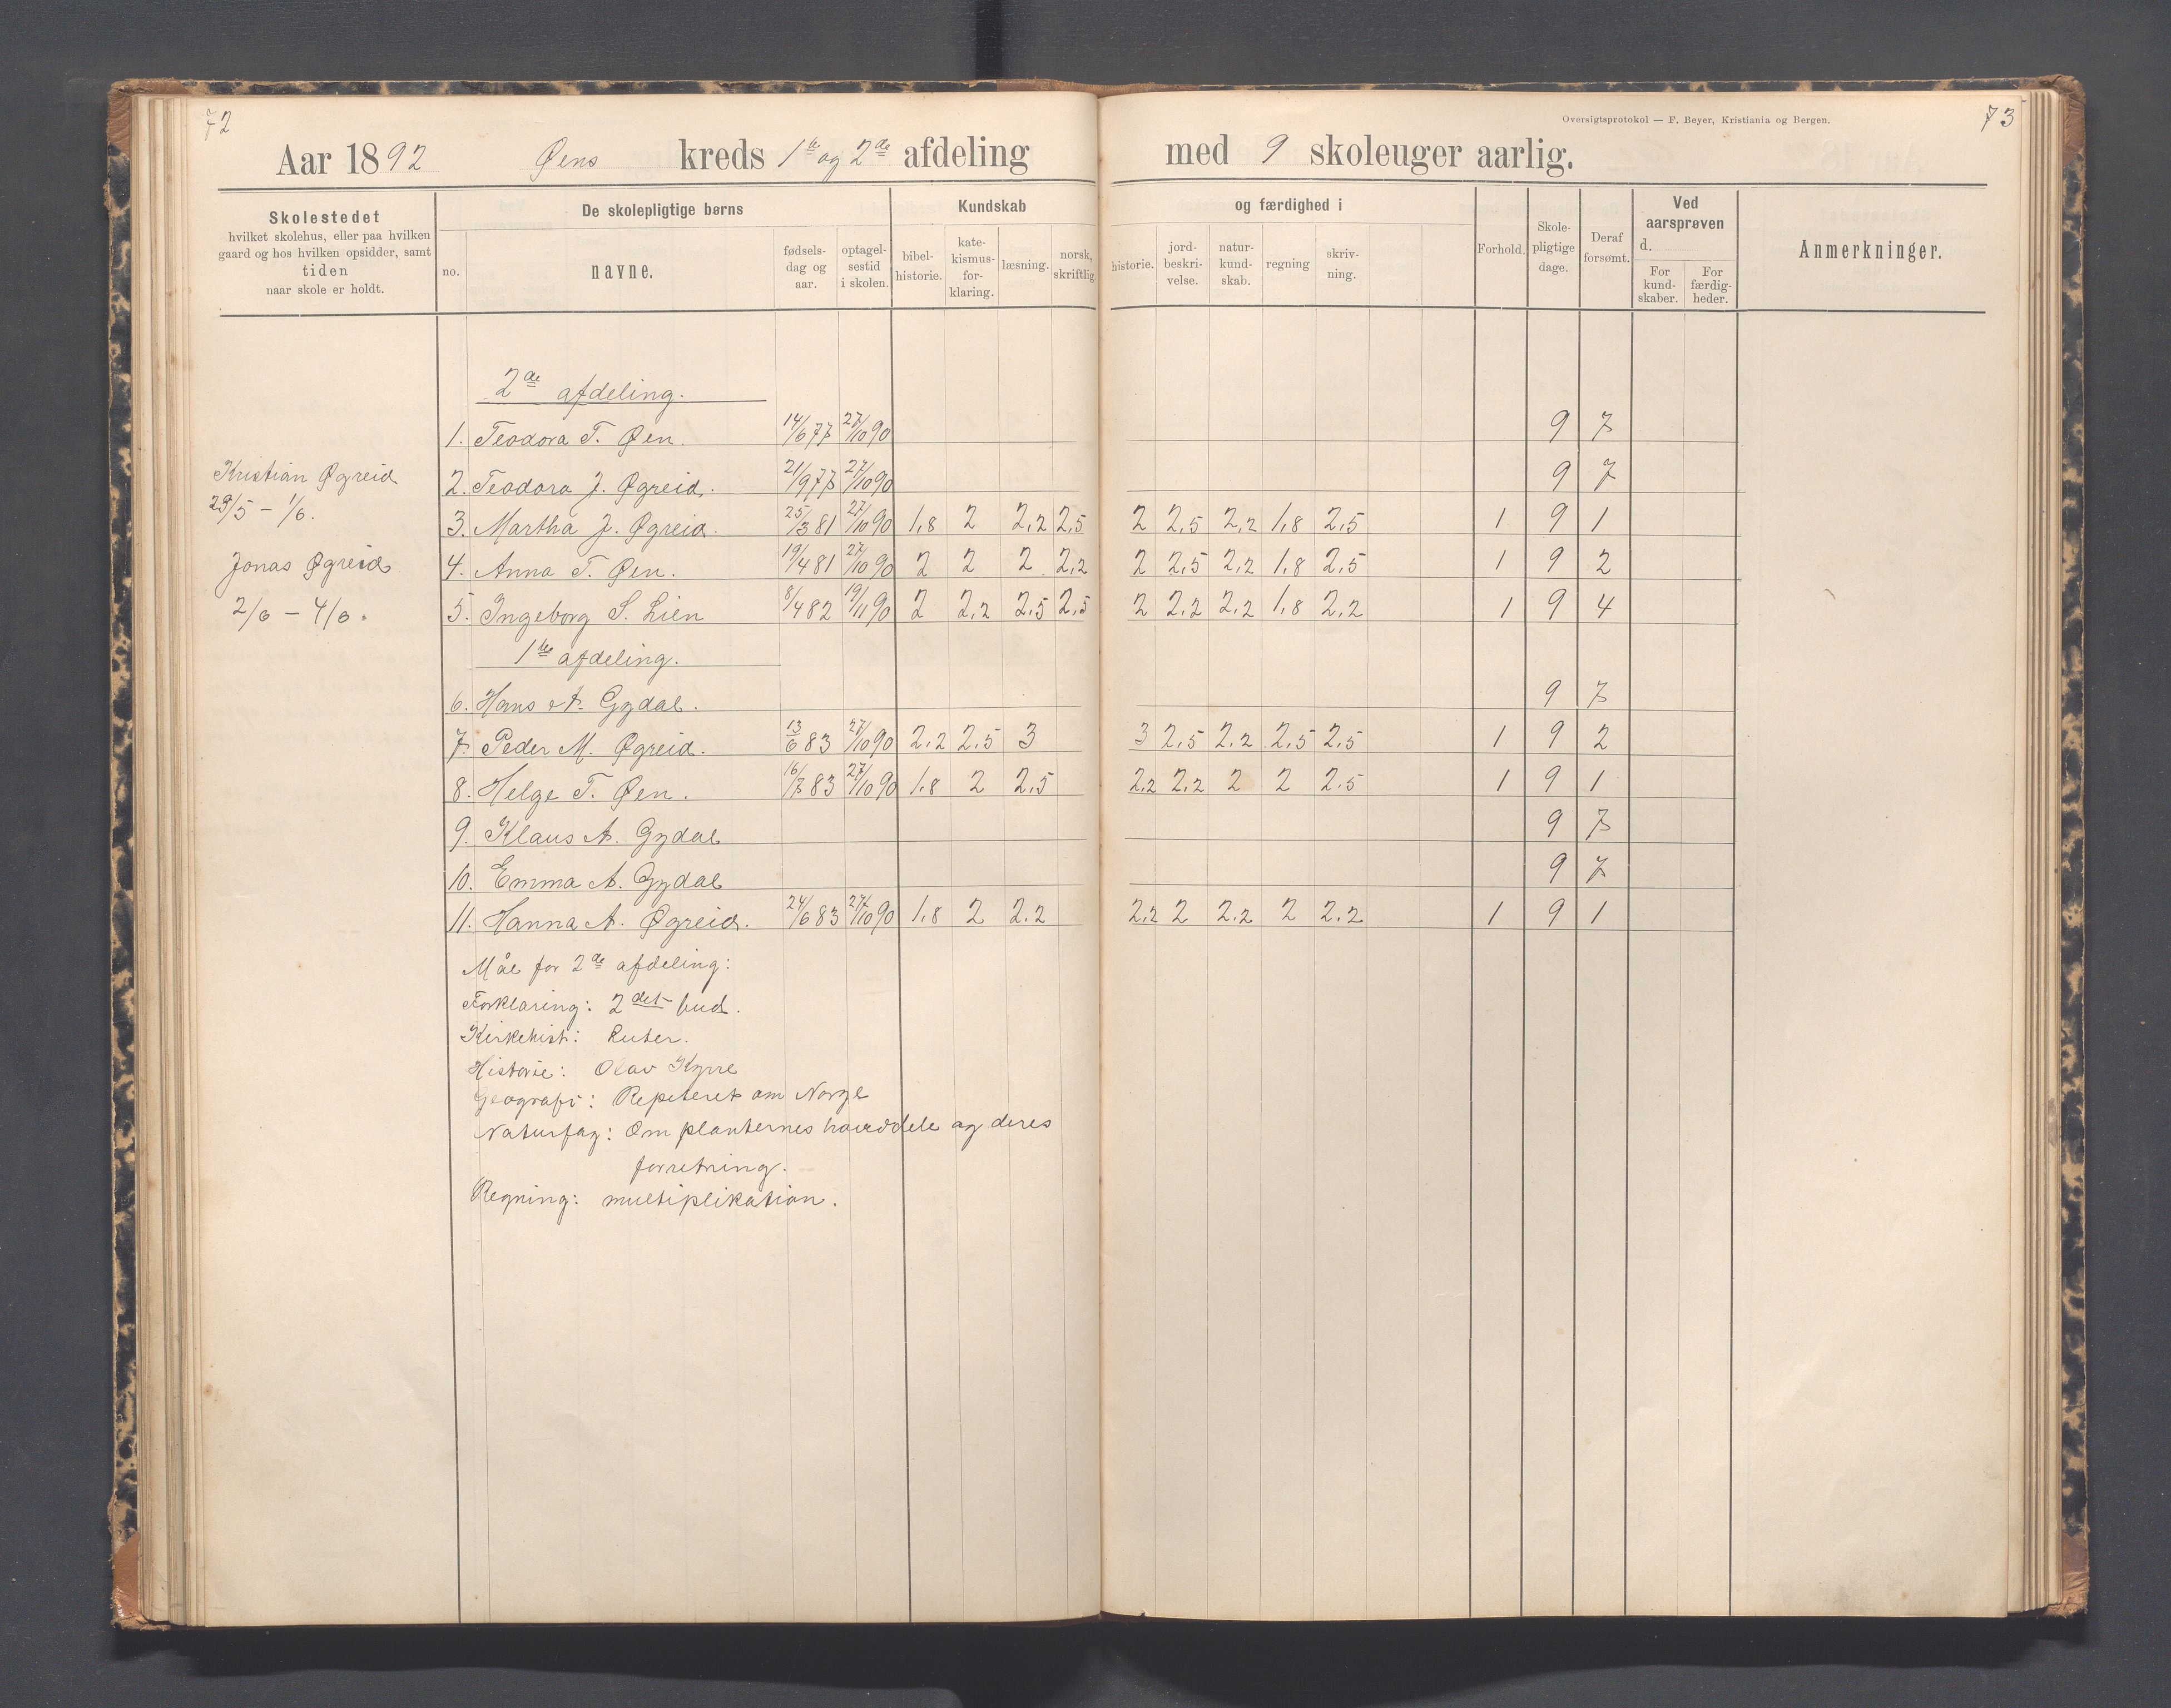 72
73
Oversigtsprotokol — F. Beyer, Kristiania og Bergen.
Aar 1892 Øens kreds 1ste og 2den afdeling med 9 skoleuger aarlig.
Skolestedet
hvilket skolehus, eller paa hvilken
gaard og hos hvilken opsidder, samt
tiden
naar skole er holdt.
De skolepligtige børns
no.
navne.
fødsels-
dag og
aar.
optagel-
sestid
i skolen.
Kundskab
bibel-
historie.
kate-
kismus-
for-
klaring.
læsning.
norsk,
skriftlig.
og færdighed i
historie.
jord-
beskri-
velse.
natur-
kund-
skab.
regning
skriv-
ning.
Forhold.
Skole-
pligtige
dage.
Deraf
forsømt.
Ved
aarsprøven
d.
For
kund-
skaber.
For
færdig-
heder.
Anmerkninger.
2de afdeling.
1. Teodora T. Øen. 14/6 77 27/10 90 9 7
Kristian Øgreid
2. Teodora J. Øgreid. 21/9 77 27/10 90 9 7
23/5 – 1/6.
3. Martha J. Øgreid. 25/3 81 27/10 90 1,8 2 2,2 2,5 2 2,5 2,2 1,8 2,5 1 9 1
Jonas Øgreid
4. Anna T. Øen. 19/4 81 27/10 90 2 2 2 2,2 2 2,5 2,2 1,8 2,5 1 9 2
2/6 – 4/6.
5. Ingeborg S. Lien 8/4 82 19/11 90 2 2,2 2,5 2,5 2 2,2 2,2 1,8 2,2 1 9 4
1ste afdeling.
6. Hans A. Gydal. 9 7
7. Peder M. Øgreid. 13/6 83 27/10 90 2,2 2,5 3 3 2,5 2,2 2,5 2,5 1 9 2
8. Helge T. Øen. 16/7 83 27/10 90 1,8 2 2,5 2,2 2,2 2 2 2,5 1 9 1
9. Klaus A. Gydal 9 7
10. Emma A. Gydal 9 7
11. Hanna A. Øgreid. 24/6 83 27/10 90 1,8 2 2,2 2,2 2 2,2 2 2,2 1 9 1
Mål for 2de afdeling:
Forklaring: 2det bud.
Kirkehist: Luter.
Historie: Olav Kyrre
Geografi: Repeteret om Norge
Naturfag: Om planternes hoveddele og deres
forretning.
Regning: multiplikation.